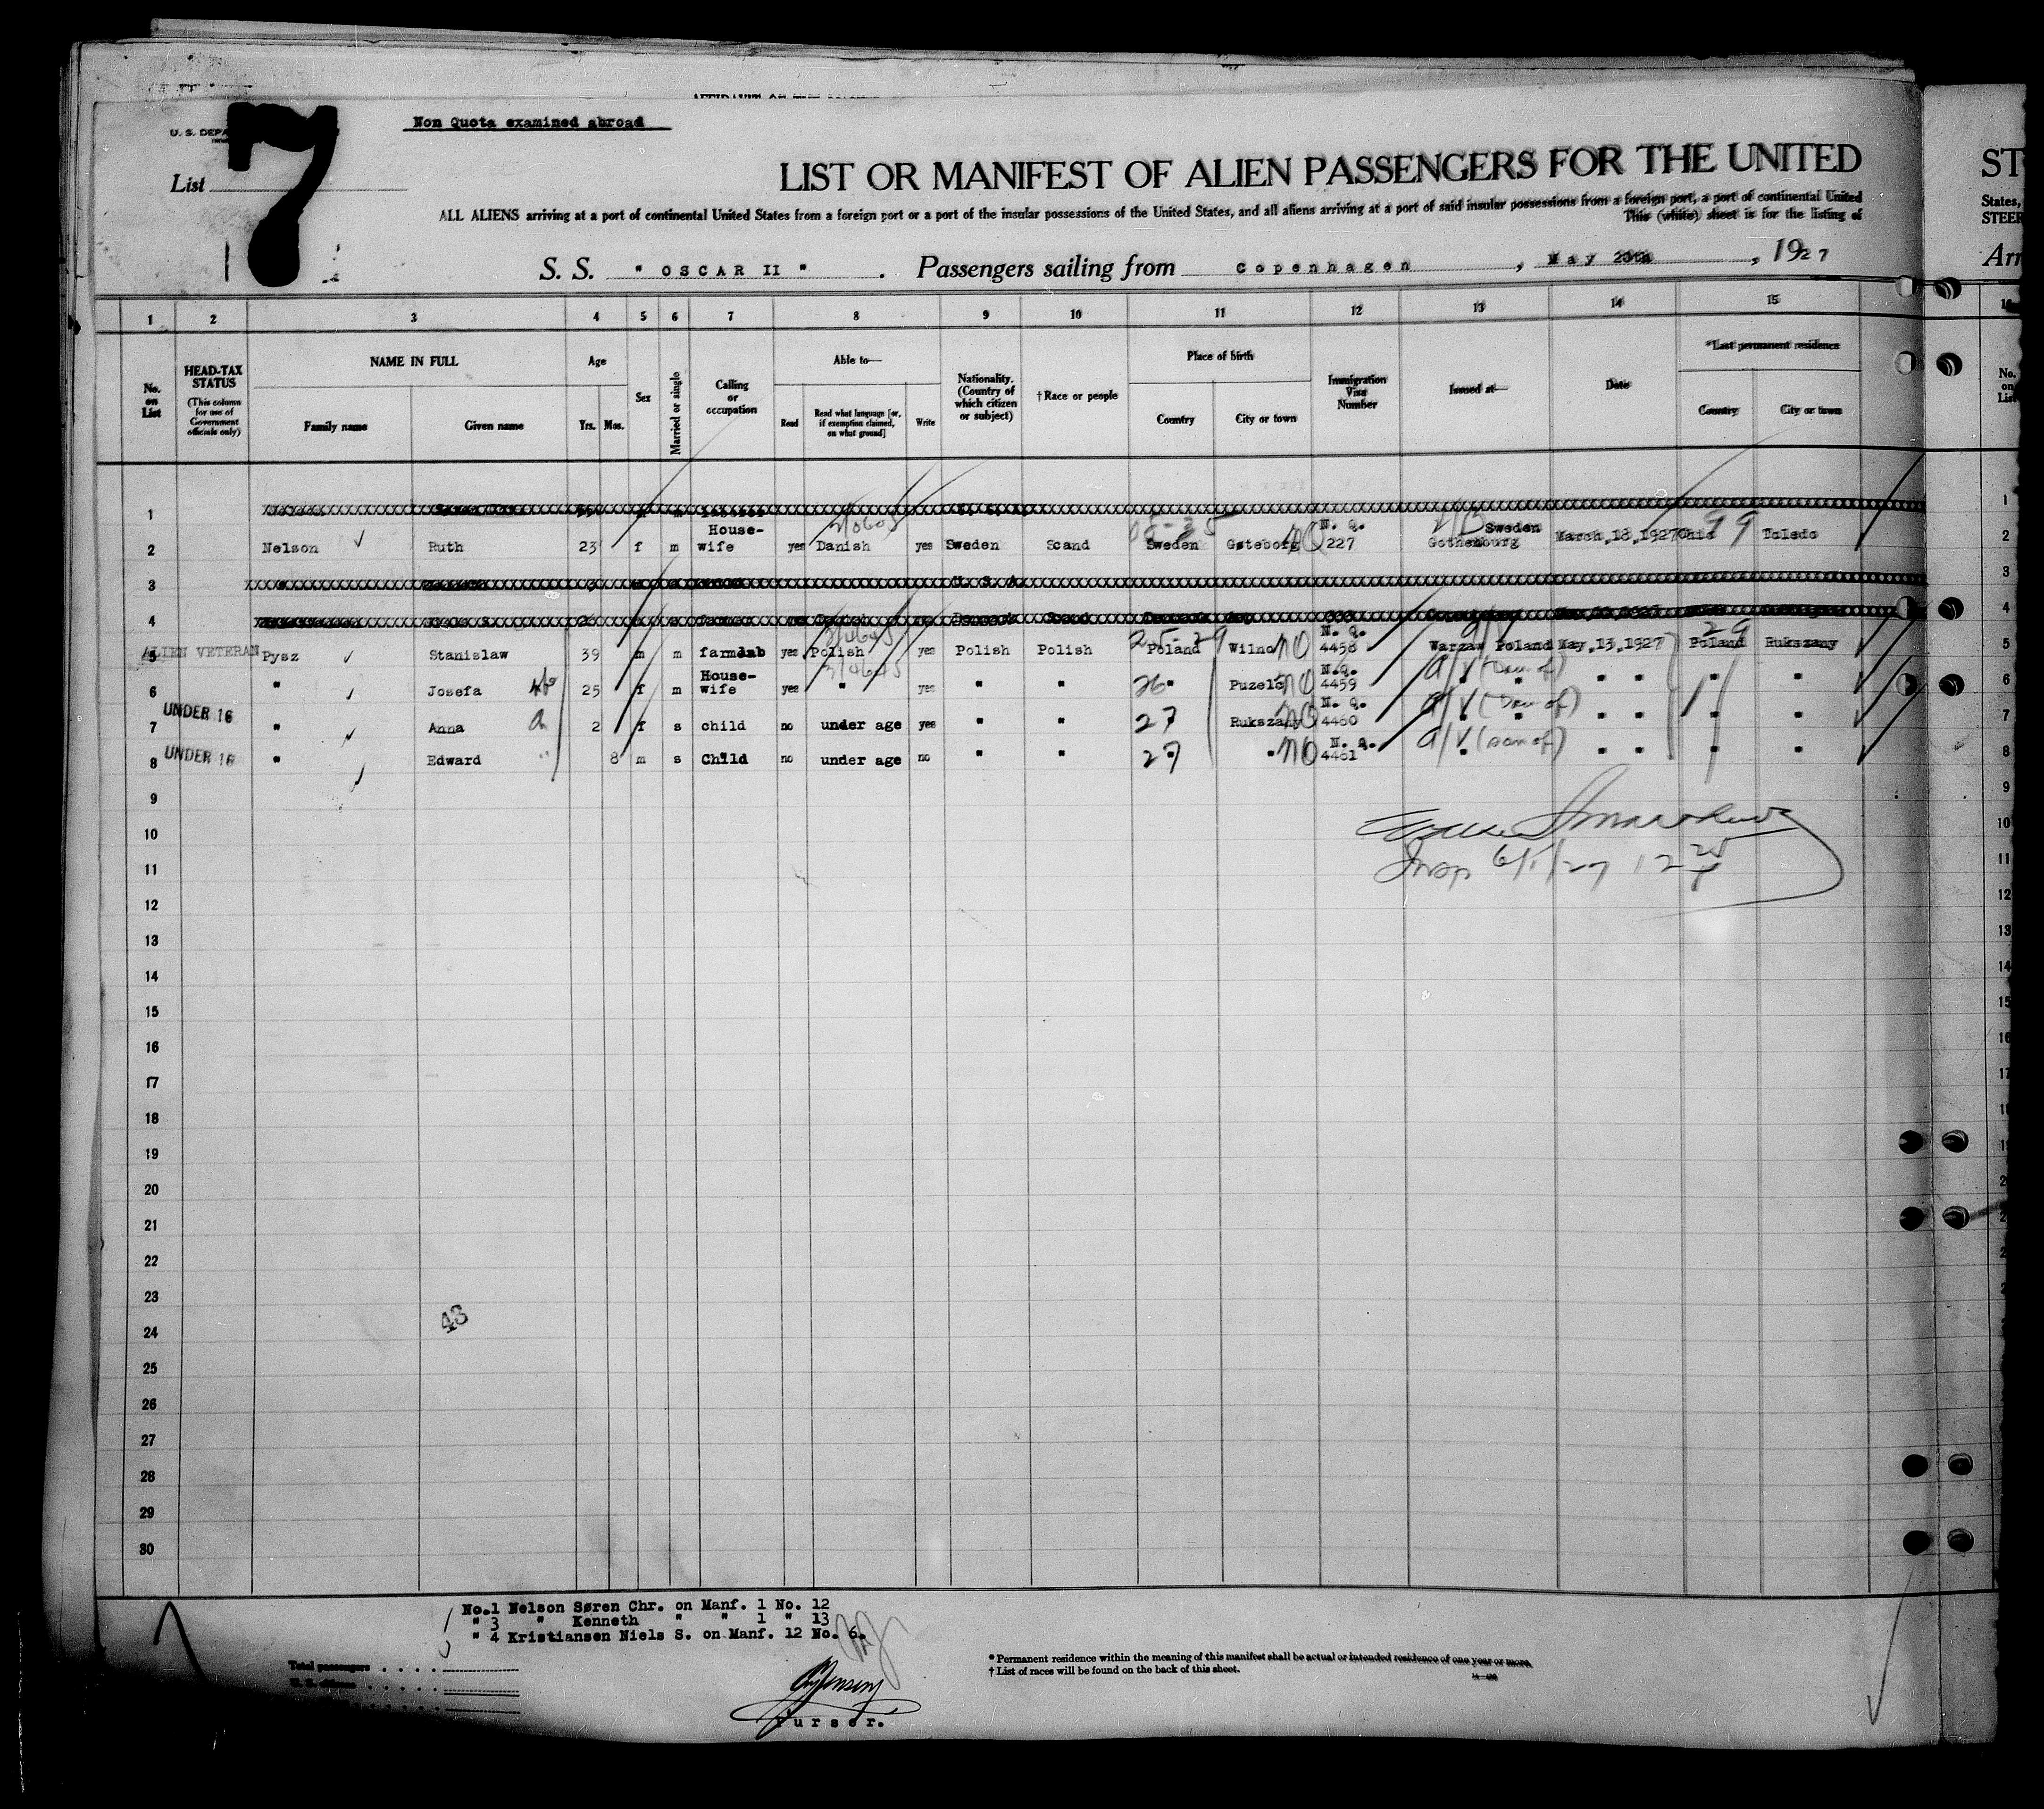 Non Quota examined abroad
U. S. DEPA
List
7
LIST OR MANIFEST OF ALIEN PASSENGERS FOR THE UNITED
ST
ALL ALIENS arriving at a port of continental United States from a foreign port or a port of the insular possessions of the United States, and all aliens arriving at a port of said insular possessions from a foreign port, a port of continental United
States,
This (white) sheet is for the listing of
STEER
S. S. " OSCAR II " . Passengers sailing from Copenhagen , May , 1927
Arr
1 2 3 4 5 6 7 8 9 10 11 12 13 14 15
No. on List
HEAD-TAX STATUS
(This column for use of Government officials only)
NAME IN FULL
Family name
Given name
Age
Yrs. Mos.
Sex
Married or single
Calling or occupation
Able to—
Read
Read what language [or, if exemption claimed, on what ground]
Write
Nationality. (Country of which citizen or subject)
†Race or people
Place of birth
Country
City or town
Immigration Visa Number
Issued at—
Date
*Last permanent residence
Country
City or town
No. on List
1
1
2 Nelson Ruth 23 f m House-wife yes Danish yes Sweden Scand Sweden Gøteborg N. Q. 227 Sweden Gothenburg March,18,1927 Ohio Toledo
2
3 U. S. A.
3
4
4
ALIEN VETERAN
5 Pysz Stanislaw 39 m m yes Polish yes Polish Polish 25-29 Poland Wilno no N. Q. 4458 Warzaw Poland May,13,1927 29 Poland Rukszany
5
6 " Josefa 25 f m House-wife yes " yes " " 26 " Puzele no N.Q. 4459 " " " " " "
6
UNDER 16
7 " Anna 2 f s child no under age yes " " 27 Rukszany no N. Q. 4460 " " " " " "
7
UNDER 16
8 " Edward 8 m s Child no under age no " " 27 " no N. Q. 4461 " " " " " "
8
9
9
10
10
11
Insp 6/1/27
11
12
12
13
13
14
14
15
15
16
16
17
17
18
19
20
21
22
23
43
24
25
26
27
28
29
30
No.1 Nelson Søren Chr. on Manf. 1 No. 12
" 3 " Kenneth " " 1 " 13
" 4 Kristiansen Niels S. on Manf. 12 No. 6.
* Permanent residence within the meaning of this manifest shall be actual or intended residence of one year or more.
Total passengers
† List of races will be found on the back of this sheet.
Purser.